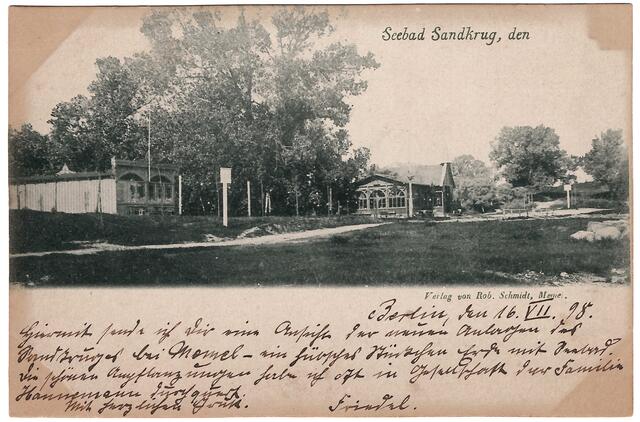 Seebad Sandkrug, den
Verlag von Rob. Schmidt,
Berlin, den 16. VII. 98.
Hiermit sende ich Dir eine Ansicht der neuen Anlagen des
Sandkruges bei Memel - ein hübsches Stückchen Erde mit Seebad.
Die schönen Anpflanzungen habe ich oft in Gesellschaft der Familie
Hannemann durchquert.
Mit herzlichem Gruß. Friedel.